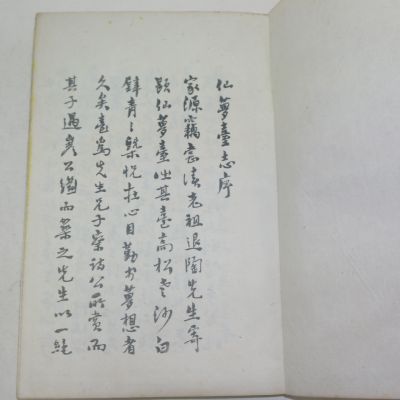 仙夢臺志序
家源竊嘗讀先祖退陶先生寄
題仙夢臺出其臺高松老沙白
壁青之槩怳在心目勤於夢想者
久矣臺為先生兄子寮訪公所賞而
其子遇彥公溪而築之先生以一絕